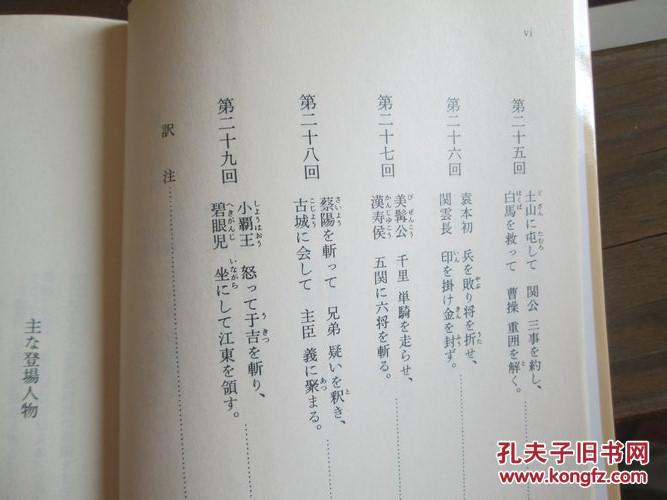 vi
第二十五回
土山に屯して 関公 三事を約し、
白馬を救って 曹操 重囲を解く。
第二十六回
袁本初 兵を敗り将を折せ、
関雲長 印を掛け金を封ず。
第二十七回
美髯公 千里 単騎を走らせ、
漢寿侯 五関に六将を斬る。
第二十八回
蔡陽を斬って 兄弟 疑いを釈き、
古城に会して 主臣 義に聚まる。
第二十九回
小覇王 怒って于吉を斬り、
碧眼児 坐にして江東を領す。
訳注
主な登場人物
孔夫子旧书网
www.kongfz.com